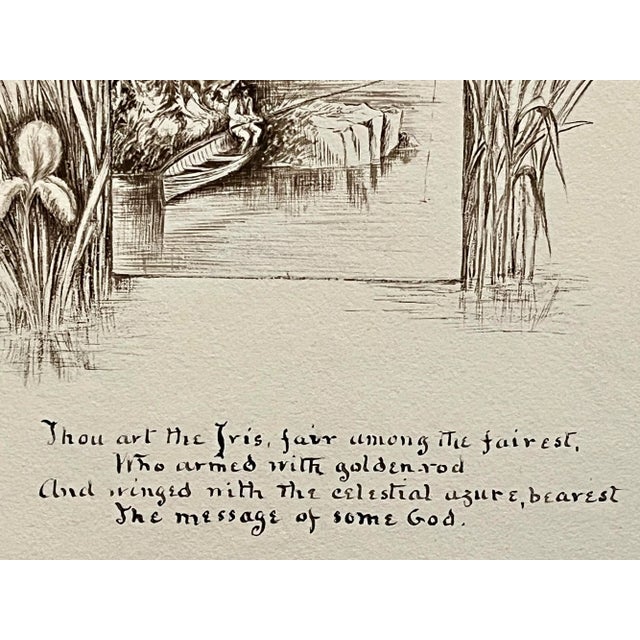 Thou art the Iris, fair among the fairest,
Who armed with golden rod
And winged with the celestial azure, bearest
The message of some God.